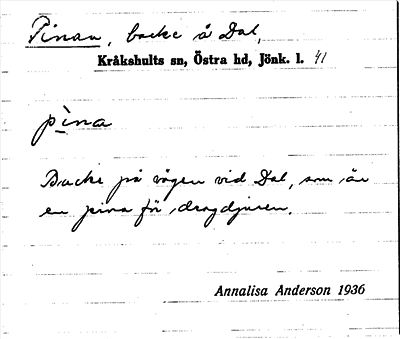 Pinan, backe å Dal,
Kråkshults sn, Östra hd, Jönk. l. 41
pi̱na
Backe på vägen vid Dal, som är
en pina för dragdjuren.
Annalisa Anderson 1936